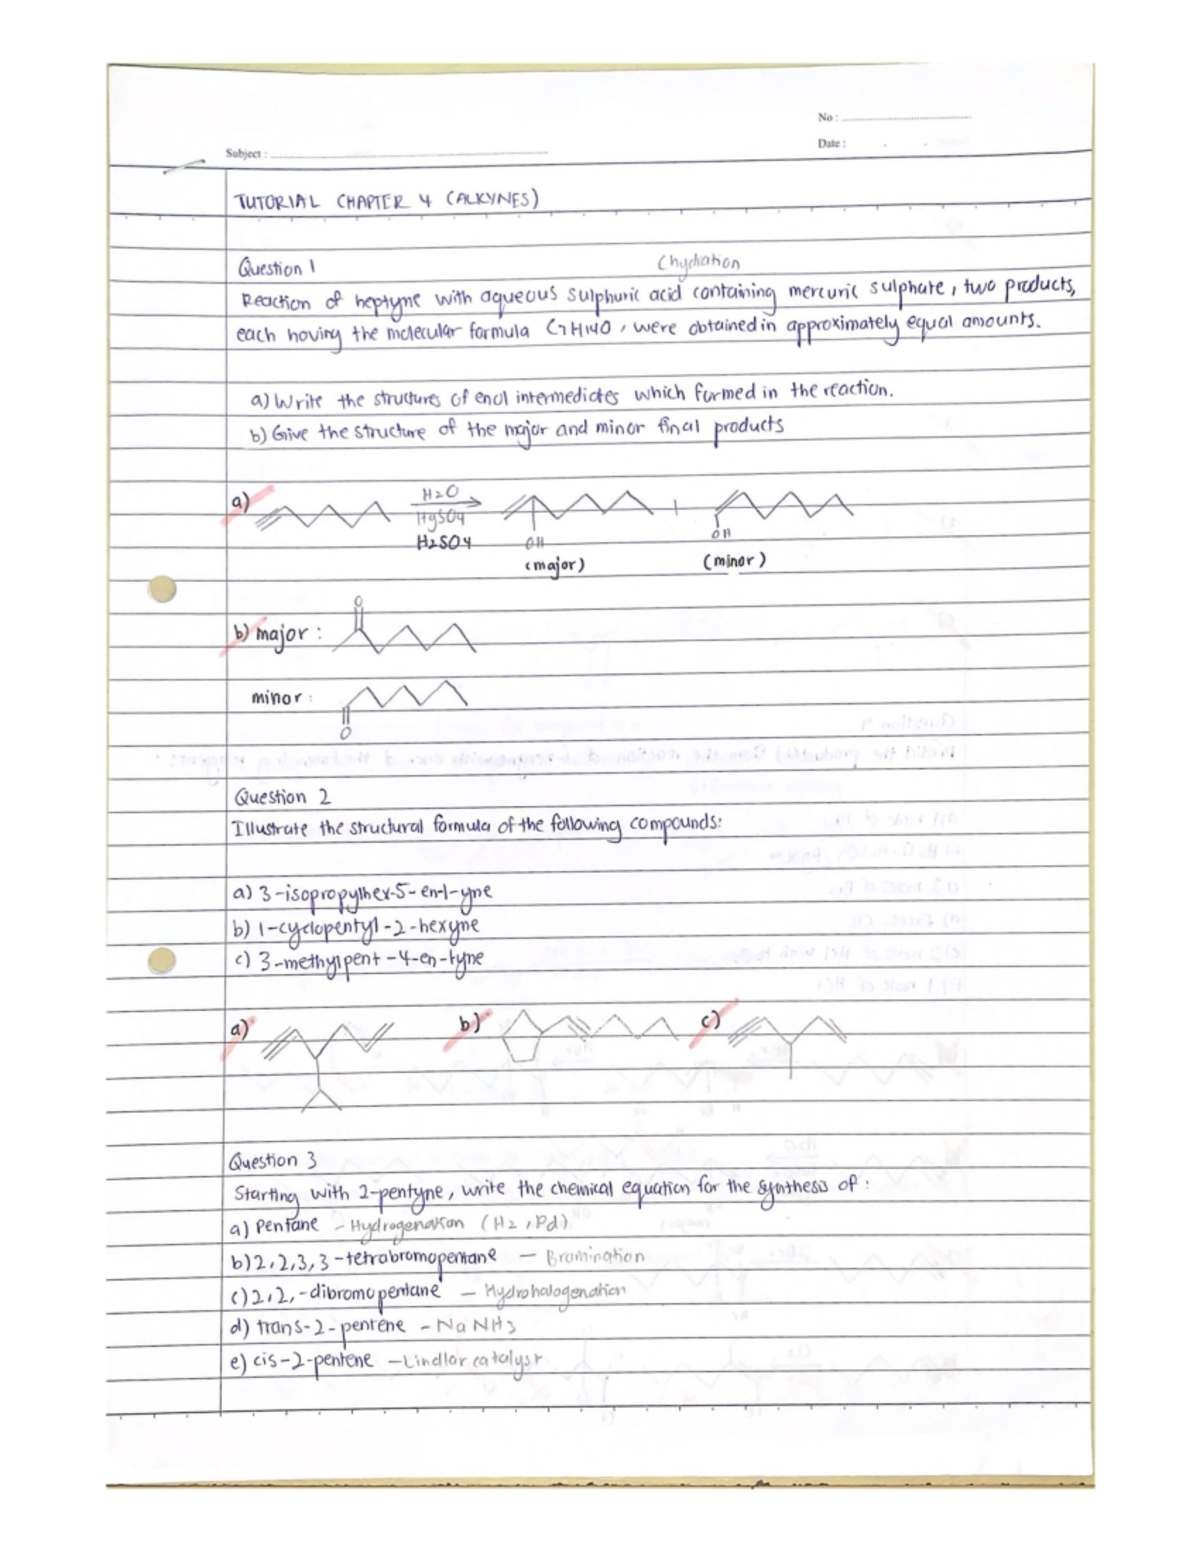 No :
Date :
Subject :
TUTORIAL CHAPTER 4 (ALKYNES)
Question 1
Chydration
Reaction of heptyne with aqueous sulphuric acid containing mercuric sulphate, two products,
each having the molecular formula C7H14O, were obtained in approximately equal amounts.
a) Write the structures of enol intermediates which formed in the reaction.
b) Give the structure of the major and minor final products
a)
H2O
HgSO4
H2SO4
+
OH
OH
(major)
(minor)
b) major :
O
minor :
O
Question 2
Illustrate the structural formula of the following compounds:
a) 3-isopropylhex-5-en-1-yne
b) 1-cyclopentyl-2-hexyne
c) 3-methylpent-4-en-1yne
a)
b)
c)
Question 3
Starting with 2-pentyne, write the chemical equation for the synthesis of :
a) Pentane - Hydrogenation (H2, Pd)
b) 2,2,3,3-tetrabromopentane - Bromination
c) 2,2,-dibromopentane - Hydrohalogenation
d) trans-2-pentene - NaNH3
e) cis-2-pentene - Lindlar catalyst